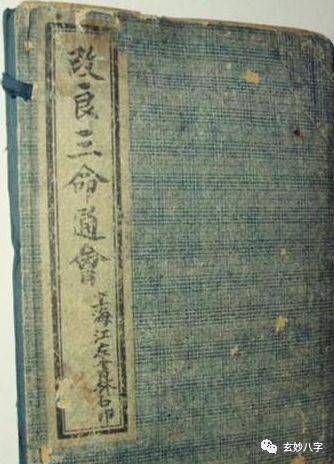 改良三命通會
上海江左書林石印
玄妙八字